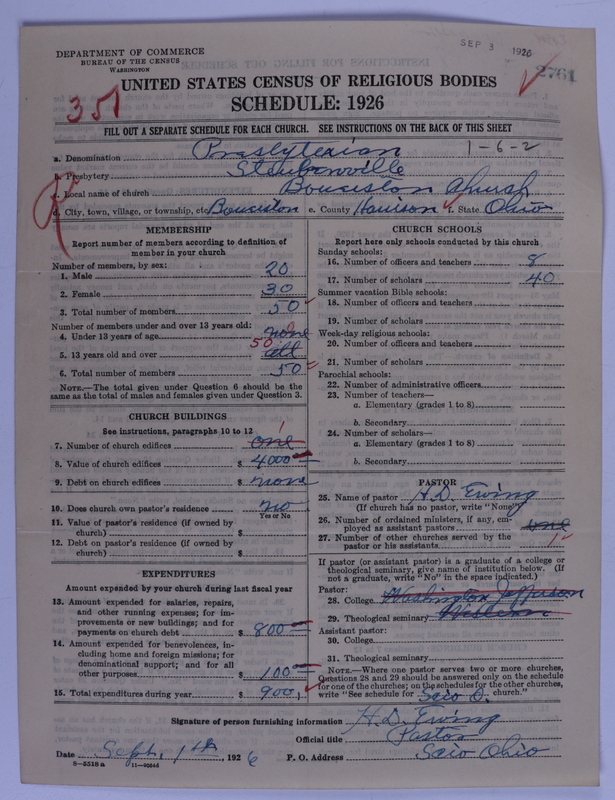 DEPARTMENT OF COMMERCE
BUREAU OF THE CENSUS
WASHINGTON
SEP 3 1926
2761
351
UNITED STATES CENSUS OF RELIGIOUS BODIES
SCHEDULE: 1926
FILL OUT A SEPARATE SCHEDULE FOR EACH CHURCH. SEE INSTRUCTIONS ON THE BACK OF THIS SHEET
a. Denomination Presbyterian 1-6-2
b. Presbytery Steubenville
c. Local name of church Church
d. City, town, village, or township, etc. e. County Harrison f. State Ohio
MEMBERSHIP
Report number of members according to definition of
member in your church
Number of members by sex:
1. Male 20
2. Female 30
3. Total number of members 50
Number of members under and over 13 years old:
4. Under 13 years of age none
5. 13 years old and over 50 all
6. Total number of members 50
NOTE.—The total given under Question 6 should be
same as the total of males and females given under Question 3.
CHURCH BUILDINGS
See instructions, paragraphs 10 to 12
7. Number of church edifices one 1
8. Value of church edifices $ 4000
9. Debt on church edifices $ none
10. Does church own pastor's residence no
Yes or No
11. Value of pastor's residence (if owned by
church) $
12. Debt on pastor's residence (if owned by
church) $
EXPENDITURES
Amount expended by your church during last fiscal year
13. Amount expended for salaries, repairs,
and other running expenses; for im-
provements or new buildings; and for
payments on church debt $ 800
14. Amount expended for benevolences, in-
cluding home and foreign missions; for
denominational support; and for all
other purposes $ 100
15. Total expenditures during year $ 900
CHURCH SCHOOLS
Report here only schools conducted by this church
Sunday schools:
16. Number of officers and teachers 8
17. Number of scholars 40
Summer vacation Bible schools:
18. Number of officers and teachers
19. Number of scholars
Week-day religious schools:
20. Number of officers and teachers
21. Number of scholars
Parochial schools:
22. Number of administrative officers
23. Number of teachers—
a. Elementary (grades 1 to 8)
b. Secondary
24. Number of scholars—
a. Elementary (grades 1 to 8)
b. Secondary
PASTOR
25. Name of pastor H. D. Ewing
(If church has no pastor, write "None")
26. Number of ordained ministers, if any, em-
ployed as assistant pastors one
27. Number of other churches served by the
pastor or his assistants 1
If pastor (or assistant pastor) is a graduate of a college or
theological seminary, give name of institution below. (If
not a graduate, write "No" in the space indicated.)
Pastor:
28. College Washington Jefferson
29. Theological seminary Western
Assistant pastor:
30. College
31. Theological seminary
NOTE.—Where one pastor serves two or more churches,
Questions 28 and 29 should be answered only on the schedule
for one of the churches; on the schedules for the other churches,
write "See schedule for Scio O. church."
Signature of person furnishing information H. D. Ewing
Official title Pastor
Date Sept. 1th 1926 P. O. Address Scio Ohio
8-5518 a